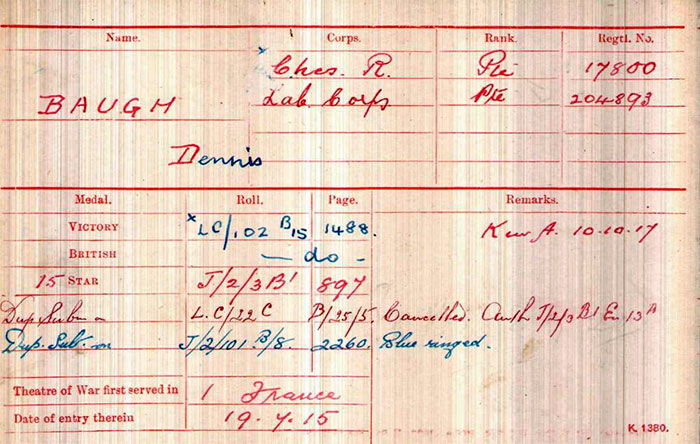 Name. Corps. Rank. Regtl. No.
Ches. R. Pte 17800
BAUGH Lab. Corps Pte 204893
Dennis
Medal. Roll. Page. Remarks.
VICTORY x LC/102 B15 1488. K in A. 10.10.17
BRITISH — do —
15 STAR J/2/3B1 897
Dup. Sub. on L.C/22C B/25/5. Cancelled. Auth J/2/3 B1 En 13A
Dup. Sub. on J/2/101 B/8. 2260. Blue ringed.
Theatre of War first served in 1 France
Date of entry therein 19.7.15
K. 1380.